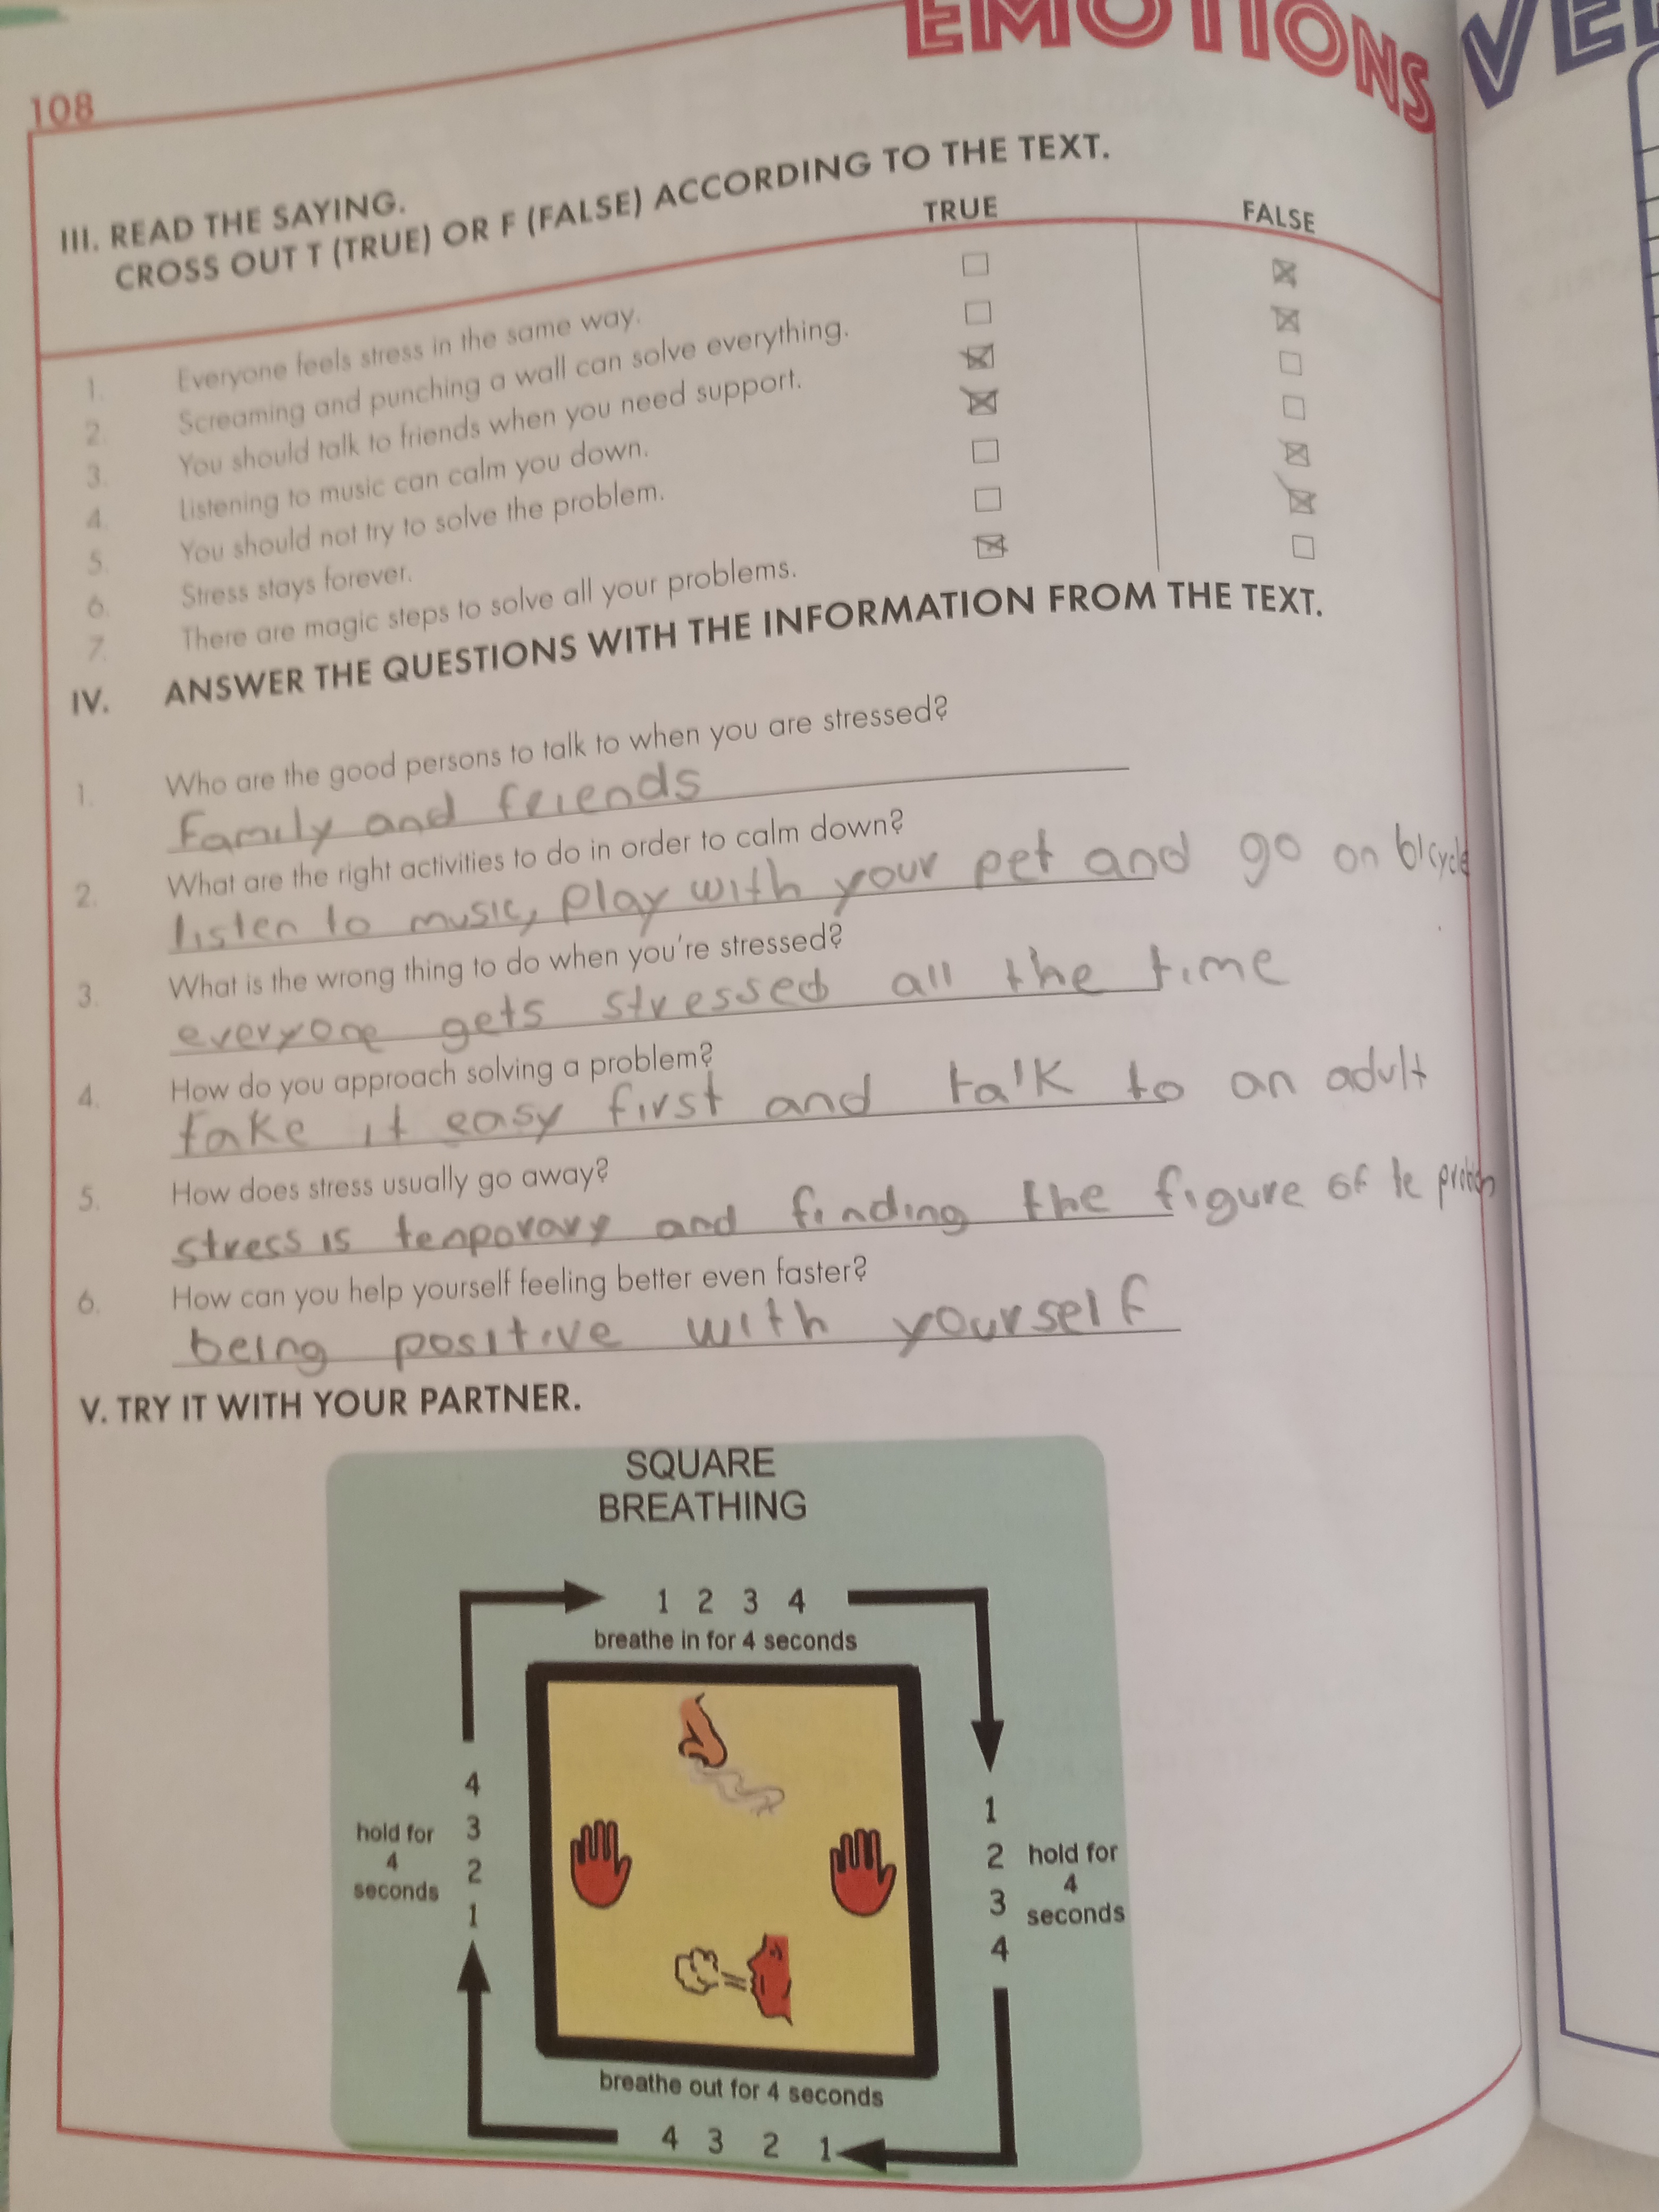 EMOTIONS
108
III. READ THE SAYING.
CROSS OUT T (TRUE) OR F (FALSE) ACCORDING TO THE TEXT.
TRUE FALSE
1. Everyone feels stress in the same way.
2. Screaming and punching a wall can solve everything.
3. You should talk to friends when you need support.
4. Listening to music can calm you down.
5. You should not try to solve the problem.
6. Stress stays forever.
7. There are magic steps to solve all your problems.
IV. ANSWER THE QUESTIONS WITH THE INFORMATION FROM THE TEXT.
1. Who are the good persons to talk to when you are stressed?
Family and friends
2. What are the right activities to do in order to calm down?
listen to music, play with your pet and go on bicycle
3. What is the wrong thing to do when you're stressed?
everyone gets stressed all the time
4. How do you approach solving a problem?
take it easy first and talk to an adult
5. How does stress usually go away?
stress is tenporary and finding the figure of te
6. How can you help yourself feeling better even faster?
being positive with yourself
V. TRY IT WITH YOUR PARTNER.
SQUARE
BREATHING
1 2 3 4
breathe in for 4 seconds
4
3
2
1
hold for
4
seconds
1
2
3
4
hold for
4
seconds
breathe out for 4 seconds
4 3 2 1